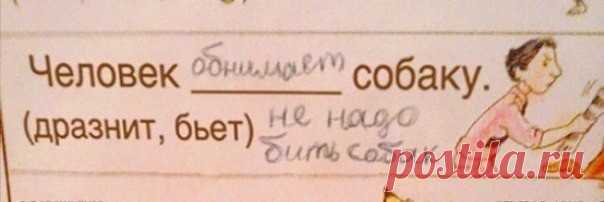 Человек обнимает собаку.
(дразнит, бьет) не надо
бить собак
postila.ru